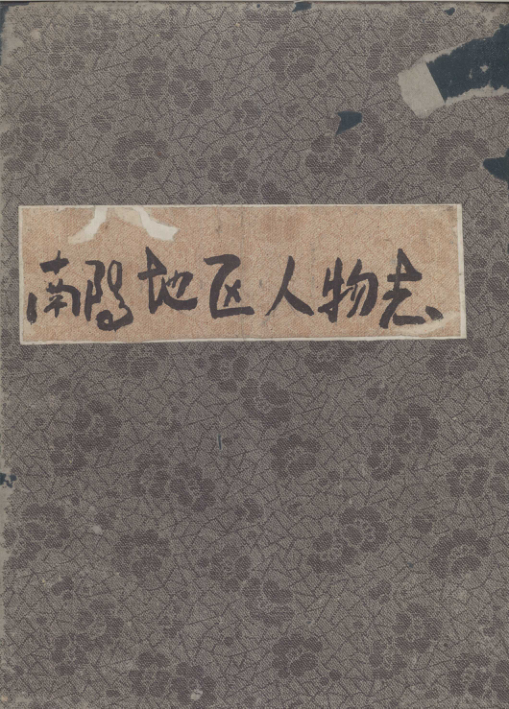 南陽地区人物志